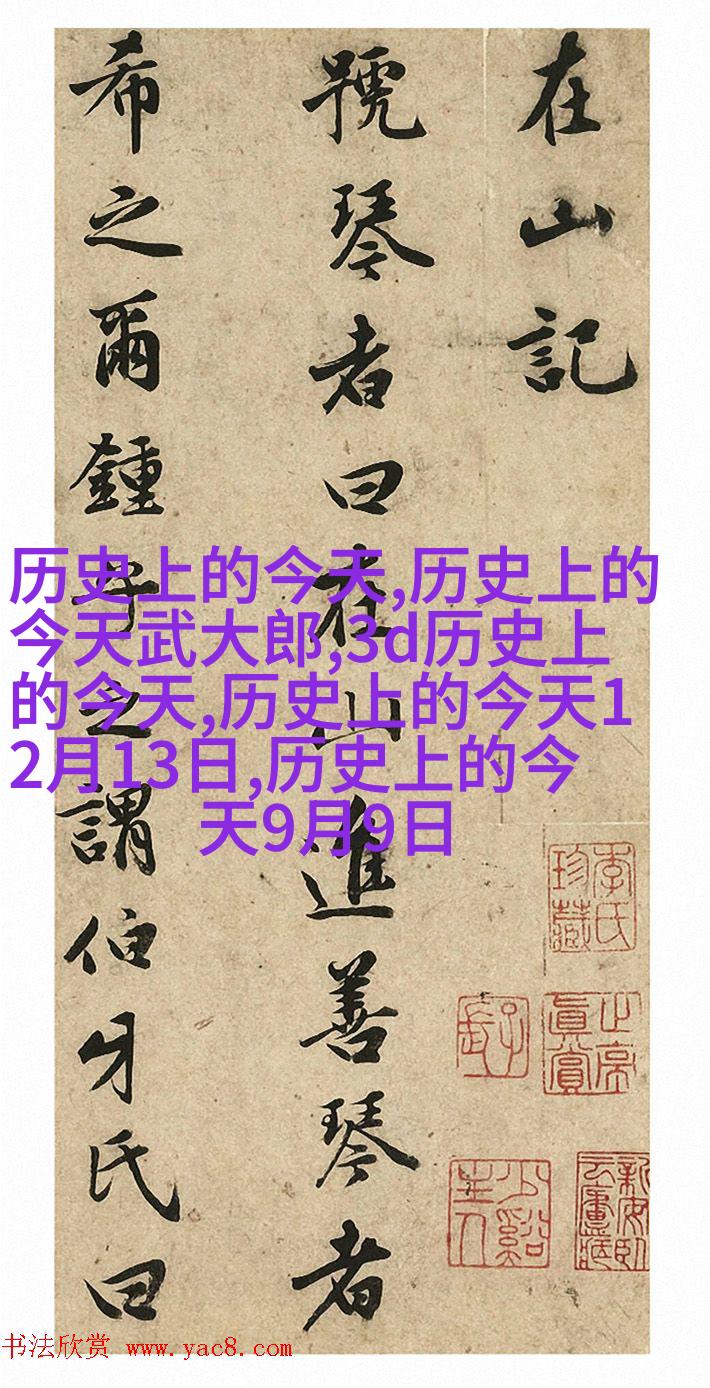 在山記
號琴者曰在山進善琴者
希之爾鍾子之謂伯牙氏曰
历史上的今天,历史上的
今天武大郎,3d历史上
的今天,历史上的今天1
2月13日,历史上的今
天9月9日
李氏珍藏
止亭真賞
子武
少谿主人
书法欣赏 www.yac8.com